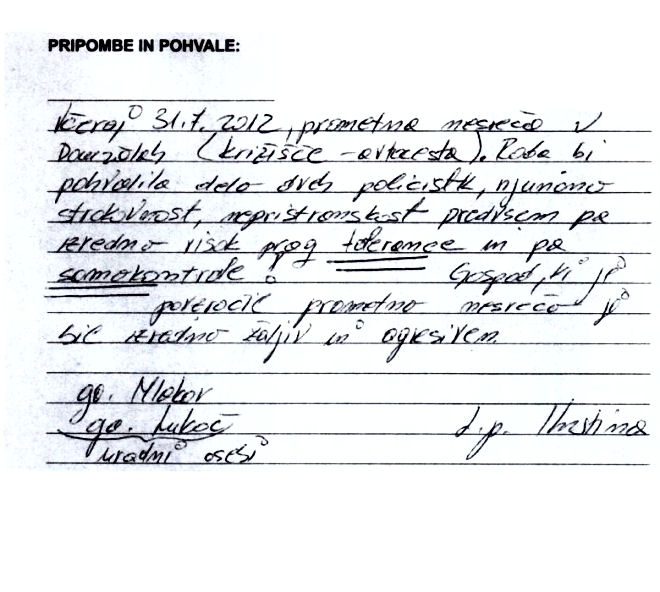 PRIPOMBE IN POHVALE:
Včeraj 31.7.2012, prometna nesreča v
Domžalah (križišče - avtocesta). Rada bi
pohvalila delo dveh policistk, njunino
strokovnost, nepristranskost predvsem pa
izredno visok prag tolerance in pa
samokontrole! Gospod, ki je
povzročil prometno nesrečo je
bil izredno žaljiv in agresiven.
ga. Mlakar
ga. Lukač
uradni osebi
l.p. Martina